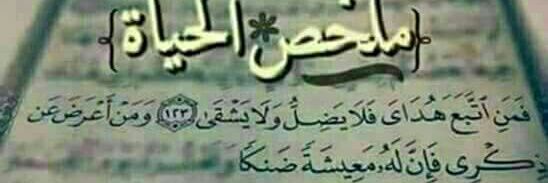 {ملخص * الحياة}
فَمَنِ ٱتَّبَعَ هُدَاىَ فَلَا يَضِلُّ وَلَا يَشْقَىٰ ﴿١٢٣﴾ وَمَنْ أَعْرَضَ عَن
ذِكْرِى فَإِنَّ لَهُۥ مَعِيشَةً ضَنكًا